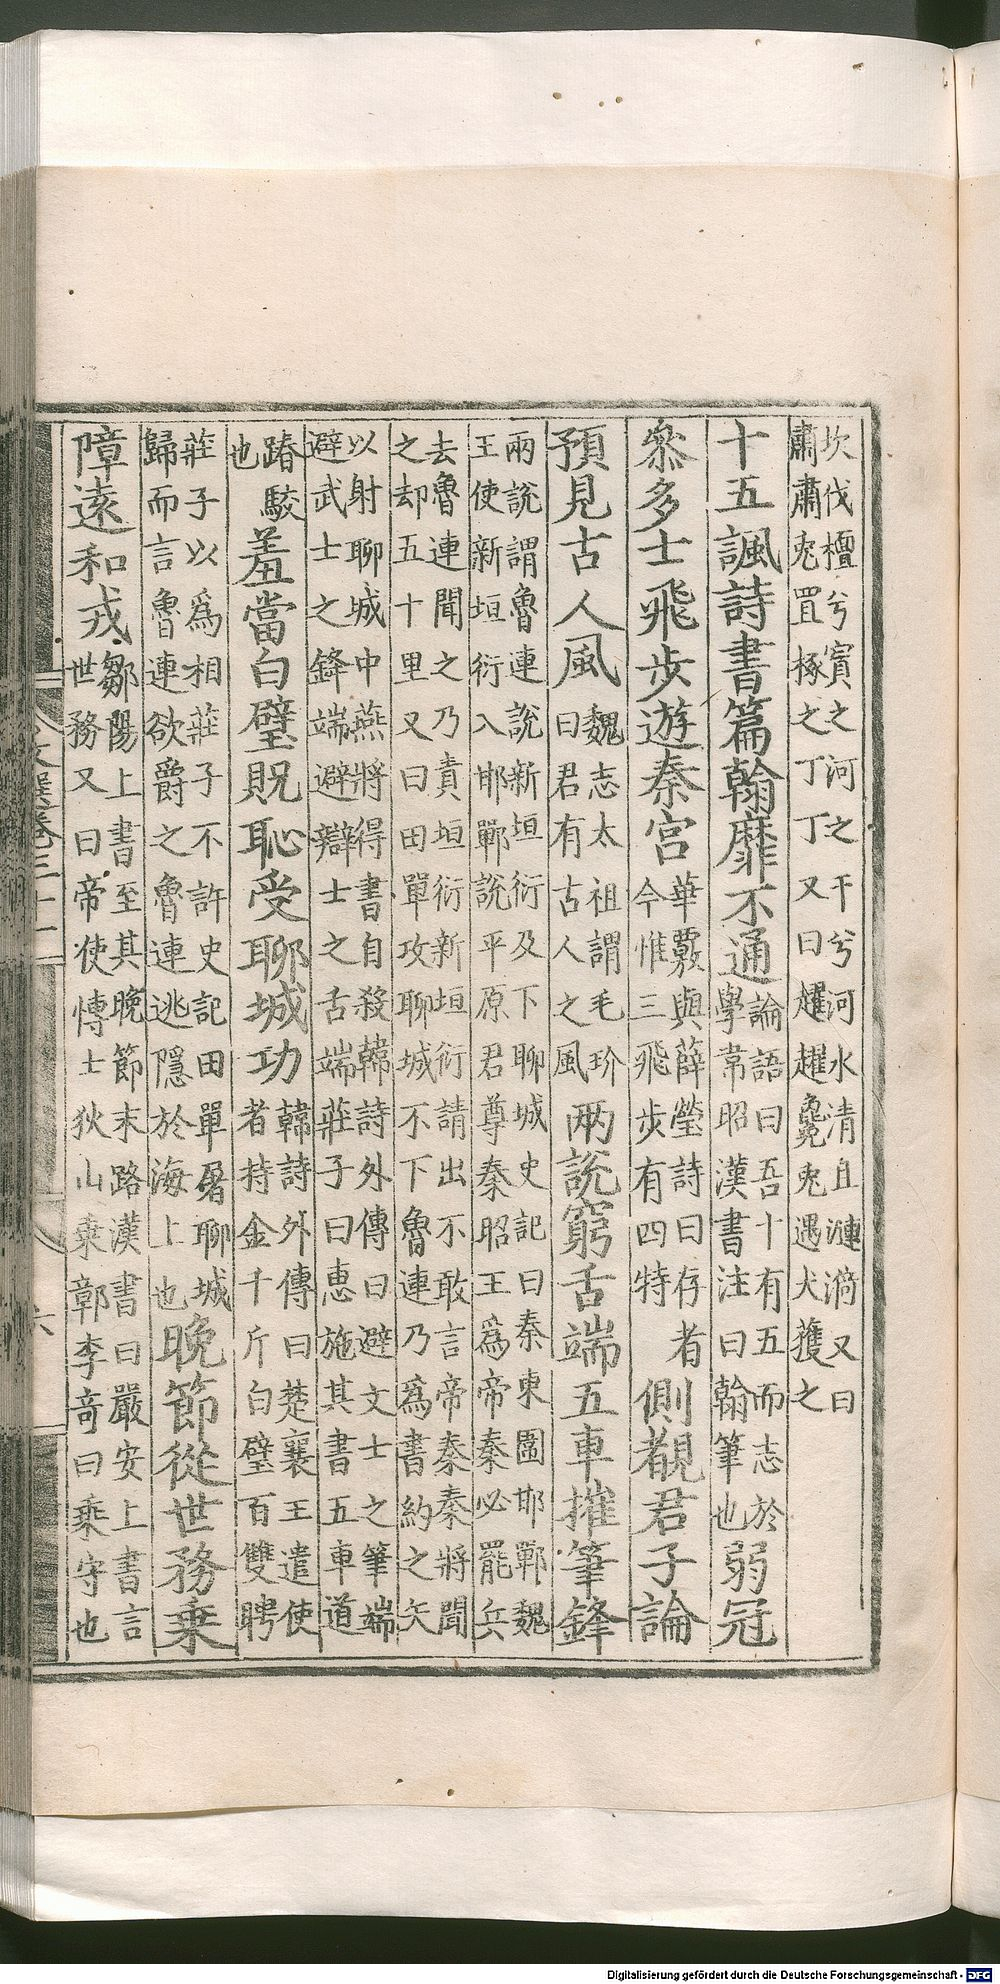 坎伐檀兮寘之河之干兮河水清且漣漪又曰
肅肅兎罝椓之丁丁又曰趯趯毚兎遇犬獲之
十五諷詩書篇翰靡不通
論語曰吾十有五而志於
學常昭漢書注曰翰筆也
弱冠
叅多士飛步遊秦宮
華覈與薛瑩詩曰存者
今惟三飛步有四特
側覩君子論
預見古人風
魏志太祖謂毛玠
曰君有古人之風
兩說窮舌端五車摧筆鋒
兩說謂魯連說新垣衍及下聊城史記曰秦東圍邯鄲魏
王使新垣衍入邯鄲說平原君尊秦昭王爲帝秦必罷兵
去魯連聞之乃責垣衍新垣衍請出不敢言帝秦秦將聞
之却五十里又曰田單攻聊城不下魯連乃爲書約之矢
以射聊城中燕將得書自殺韓詩外傳曰避文士之筆端
避武士之鋒端避辯士之舌端莊子曰惠施其書五車道
踳駮
也
羞當白璧貺恥受聊城功
韓詩外傳曰楚襄王遣使
者持金千斤白璧百雙聘
莊子以爲相莊子不許史記田單屠聊城
歸而言魯連欲爵之魯連逃隱於海上也
晚節從世務乗
障遠和戎
鄒陽上書至其晚節末路漢書曰嚴安上書言
世務又曰帝使愽士狄山乗鄣李竒曰乗守也
文選卷三十一
六
Digitalisierung gefördert durch die Deutsche Forschungsgemeinschaft - DFG